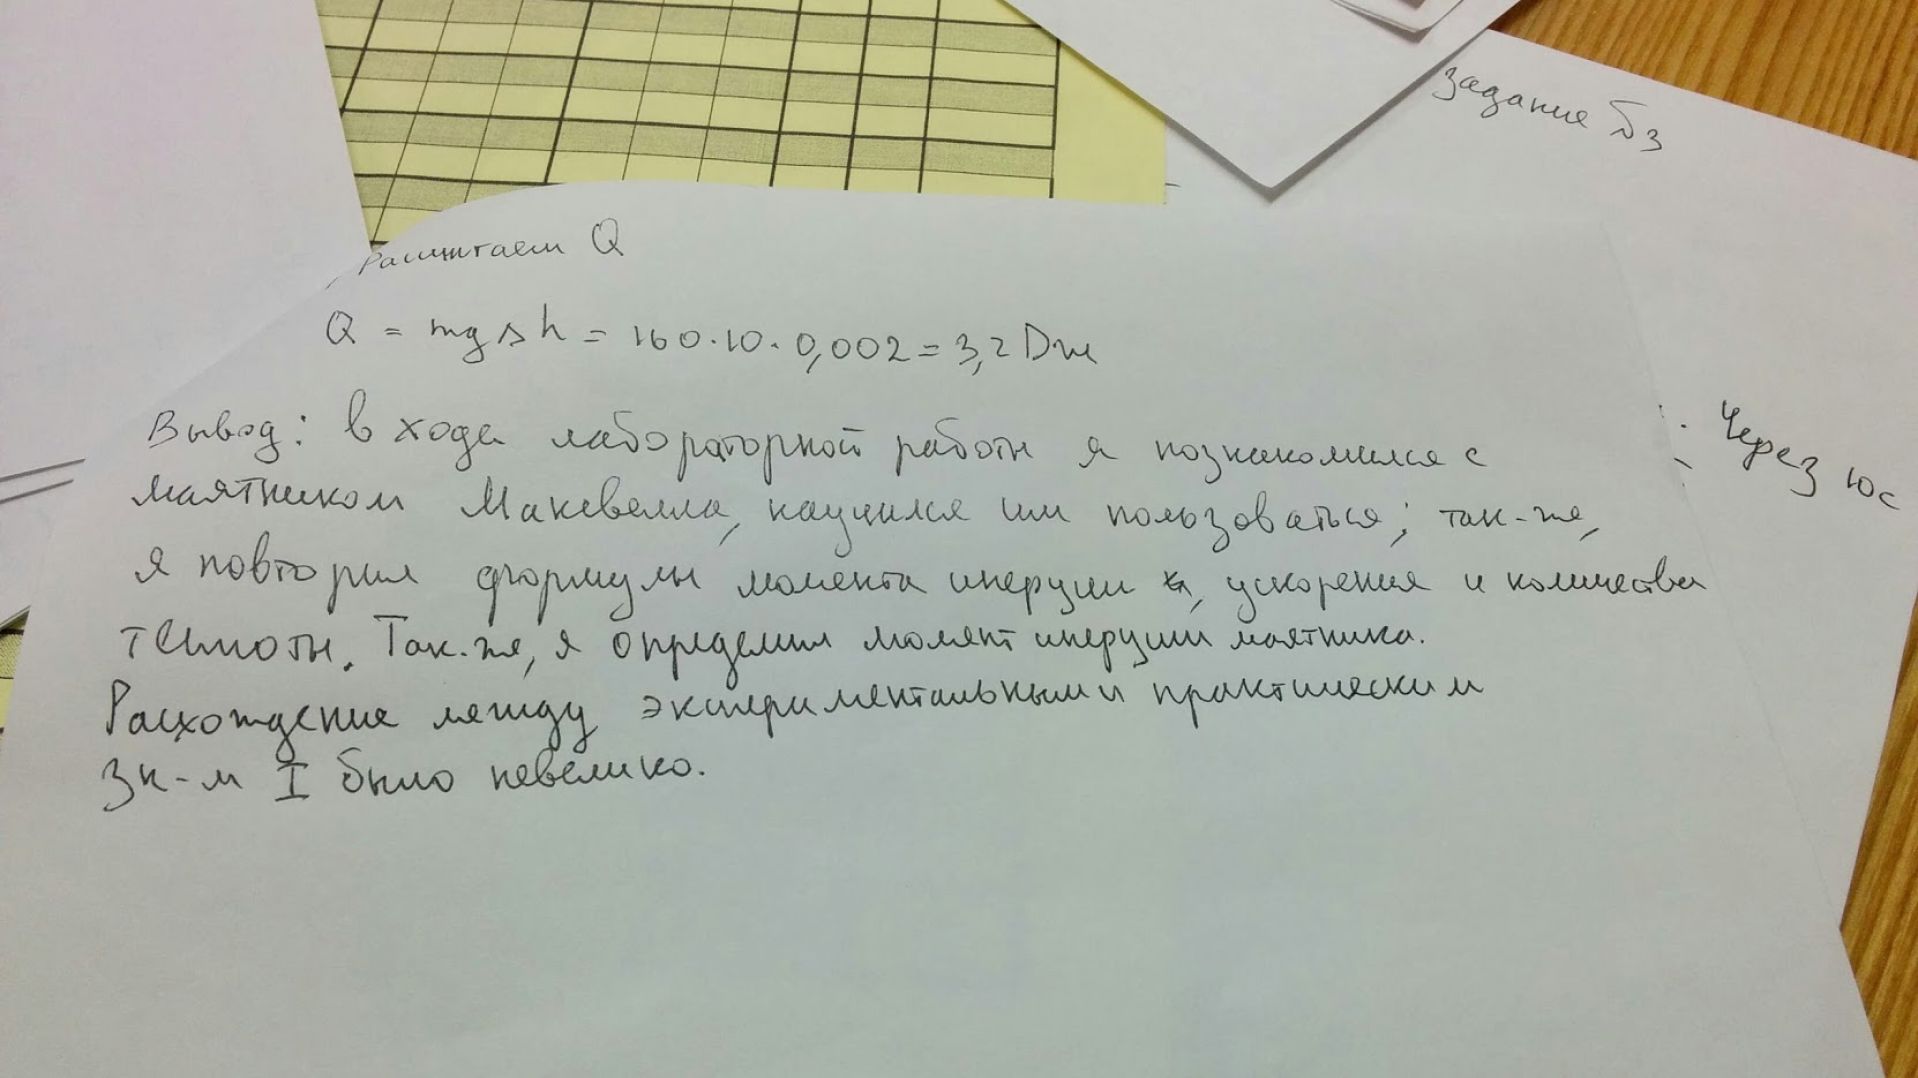 задание №3
Рассчитаем Q
Q = mgΔh = 160·10·0,002 = 3,2 Дж
Вывод: в ходе лабораторной работы я познакомился с
маятником Максвелла, научился им пользоваться; так-же,
я повторил формулы момента инерции, ускорения и количества
теплоты. Так-же, я определил момент инерции маятника.
Расхождение между экспериментальным и практическим
зн-м I было невелико.
Через 10с